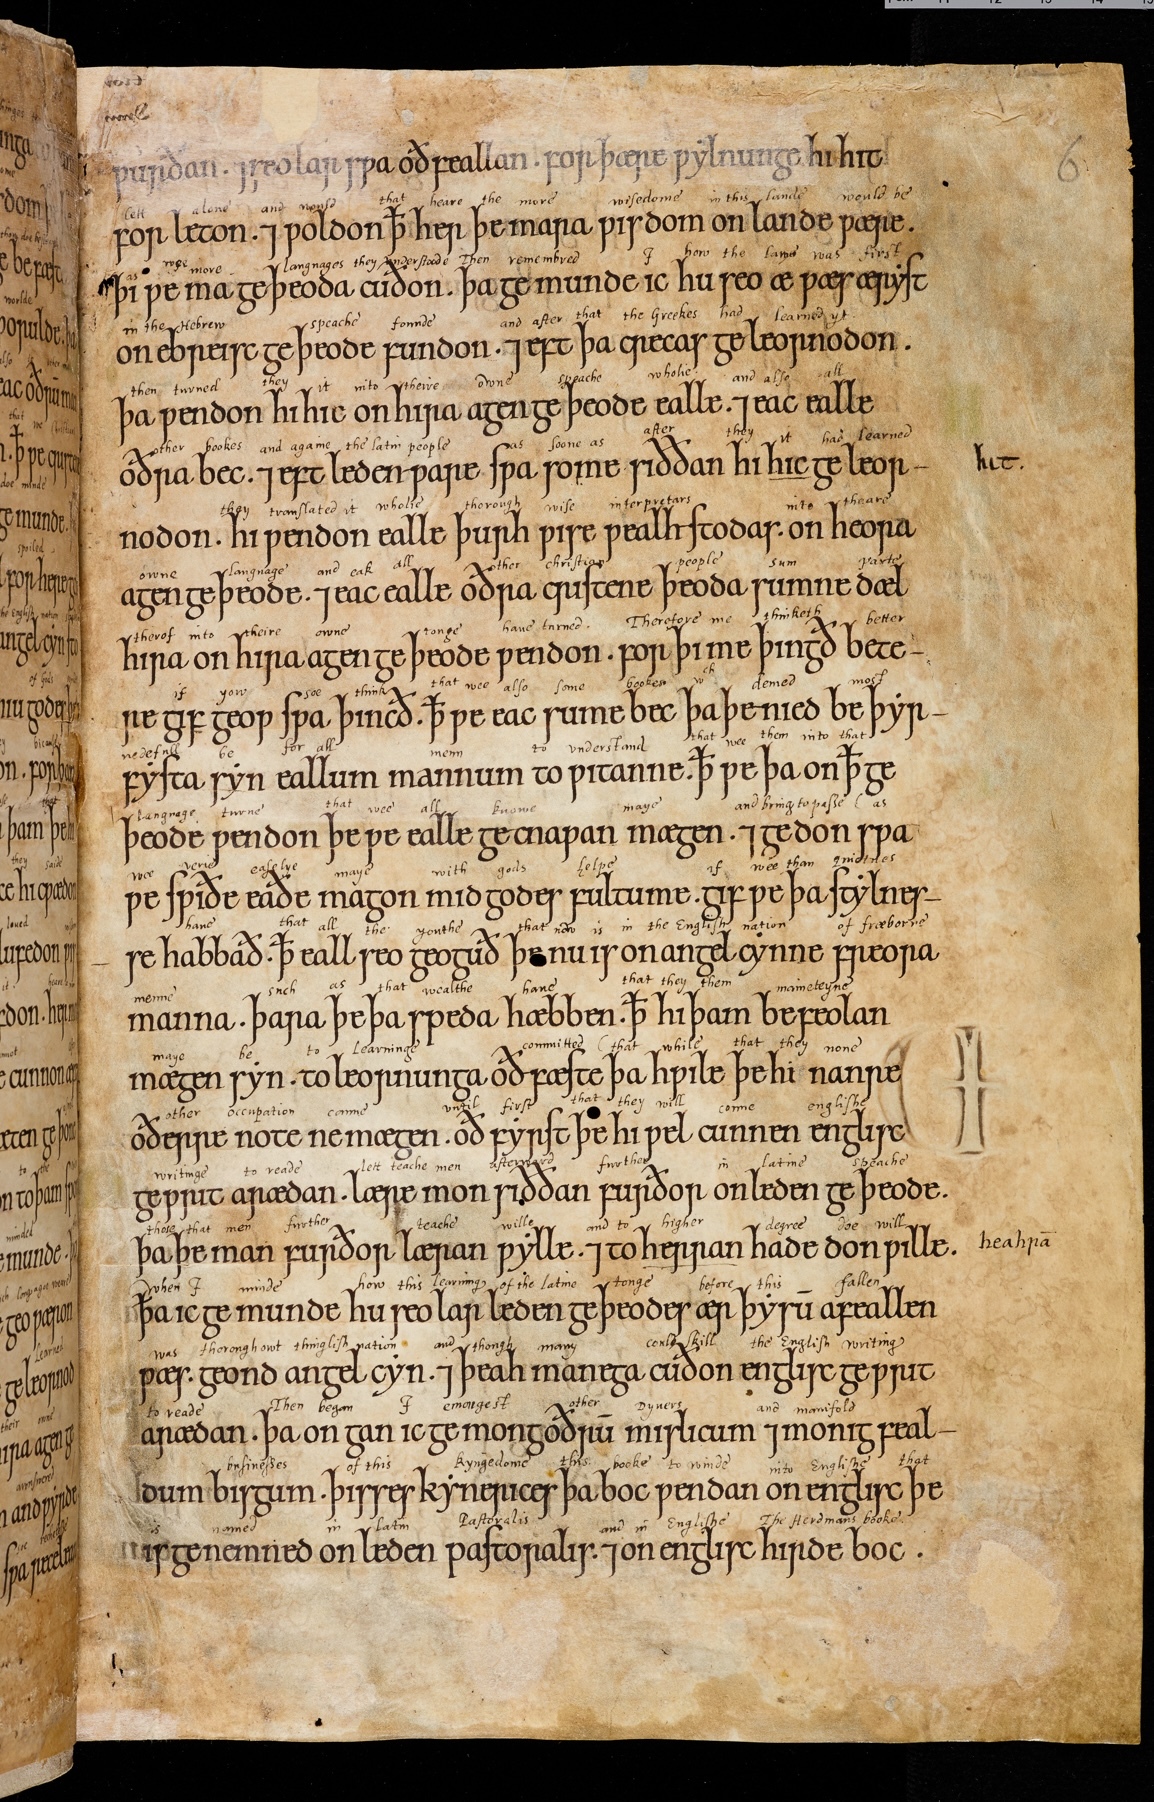 6
ƿurðan . ⁊ seo lar swa oðfeallan . for þære ƿylnunge hi hit
left alone and would that heare the more wisedome in this lande would be
forleton . ⁊ ƿoldon ꝥ her þe mara ƿisdom on lande ƿære .
as wee more languages they understode Then remembred I how the lawe was first
þi ƿe ma geþeoda cuðon . þa gemunde ic hu seo æ ƿæs æryst
in the Hebrew speache founde and after that the Greekes had learned yt
on ebreisc geþeode fundon . ⁊ eft þa crecas geleornodon .
then turned they it into theire owne speache wholie and also all
þa ƿendon hi hit on hira agen geþeode ealle . ⁊ eac ealle
other bookes and againe the latin people as soone as after they it had learned
oðra bec . ⁊ eft leden ƿare sƿa some siððan hi hit geleor-
hit.
they translated it wholie thorough wise interpretars into theare
nodon . hi ƿendon ealle þurh ƿise ƿealhstodas . on heora
owne language and eak all other christian people sum parte
agen geþeode . ⁊ eac ealle oðra cristene þeoda sumne dæl
therof into theire owne tonge have turned. Therefore me thinketh better
hira on hira agen geþeode ƿendon . for þi me þingð bete-
if yow soe think that wee also some bookes wch demed most
re gif geoƿ sƿa þincð . ꝥ ƿe eac sume bec þa þe nied beþyr-
nedefull be for all menn to understand that wee them into that
fysta syn eallum mannum to ƿitanne . ꝥ ƿe þa on ꝥ ge
language turne that wee all knowe maye and bring to passe ( as
þeode ƿendon þe ƿe ealle gecnaƿan mægen . ⁊ gedon sƿa
wee verie easelye maye with gods helpe if wee than quietnes
ƿe sƿiðe eaðe magon mid godes fultume . gif ƿe þa stylnes-
have that all the youthe that now is in the English nation of freeborne
se habbað . ꝥ eall seo geoguð þe nu is on angel cynne freora
menne such as that wealthe have that they them mainteyne
manna . þara þe þa speda hæbben . ꝥ hi þam befeolan
maye be to Learninge committed ( that while that they none
mægen syn . to leornunga oðfæste þa hƿile þe hi nanre
other occupation canne until first that they will conne englishe
oðerre note ne mægen . oð fyrst þe hi ƿel cunnen englisc
writinge to reade lett teache men afterward further in latine speache
geƿrit arædan . lære mon siððan furðor on leden geþeode .
those that men further teache wille and to higher degree doe will
þa þe man furðor læran ƿylle . ⁊ to herran hade don ƿille .
heahrā
When I minde how this learning of the latine tonge before this fallen
þa ic gemunde hu seo lar leden geþeodes ær þyssū afeallen
was thoroughowt thinglish nation and though many could skill the English writing
ƿæs . geond angel cyn . ⁊ þeah manega cuðon englisc geƿrit
to reade Then began I emongest other Dyvers and manifold
arædan . þa ongan ic gemong oðrū mislicum ⁊ monigfeal-
businesses of this Kyngedome this booke to winde into Englishe that
dum bisgum . þisses kynerices þa boc ƿendan on englisc þe
is named in latin Pastoralis and in Englishe The Herdmans booke.
is genemned on leden pastoralis . ⁊ on englisc hirde boc .